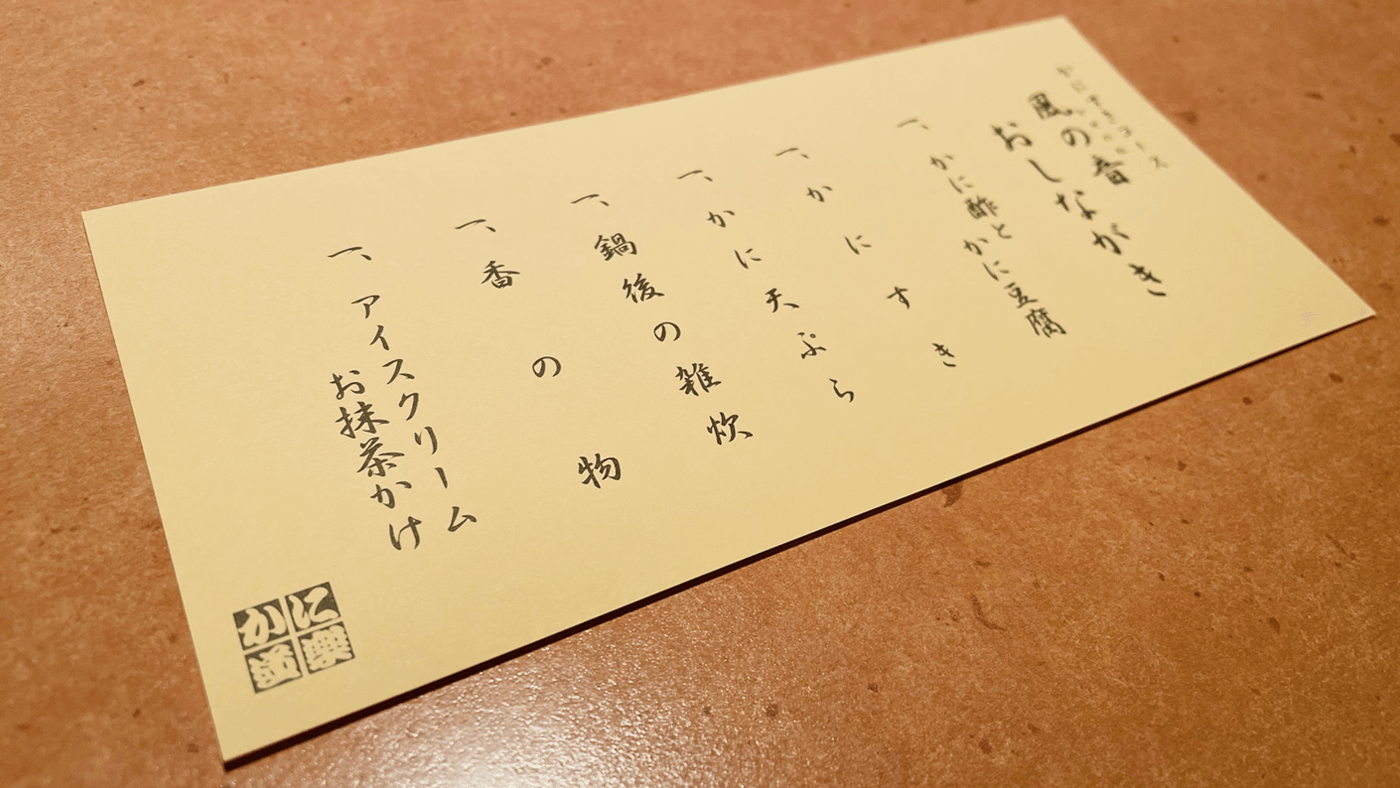 かにすきコース
風の音
おしながき
一、かに酢とかに豆腐
一、かにすき
一、かに天ぷら
一、鍋後の雑炊
一、香の物
一、アイスクリーム
お抹茶かけ
かに道楽